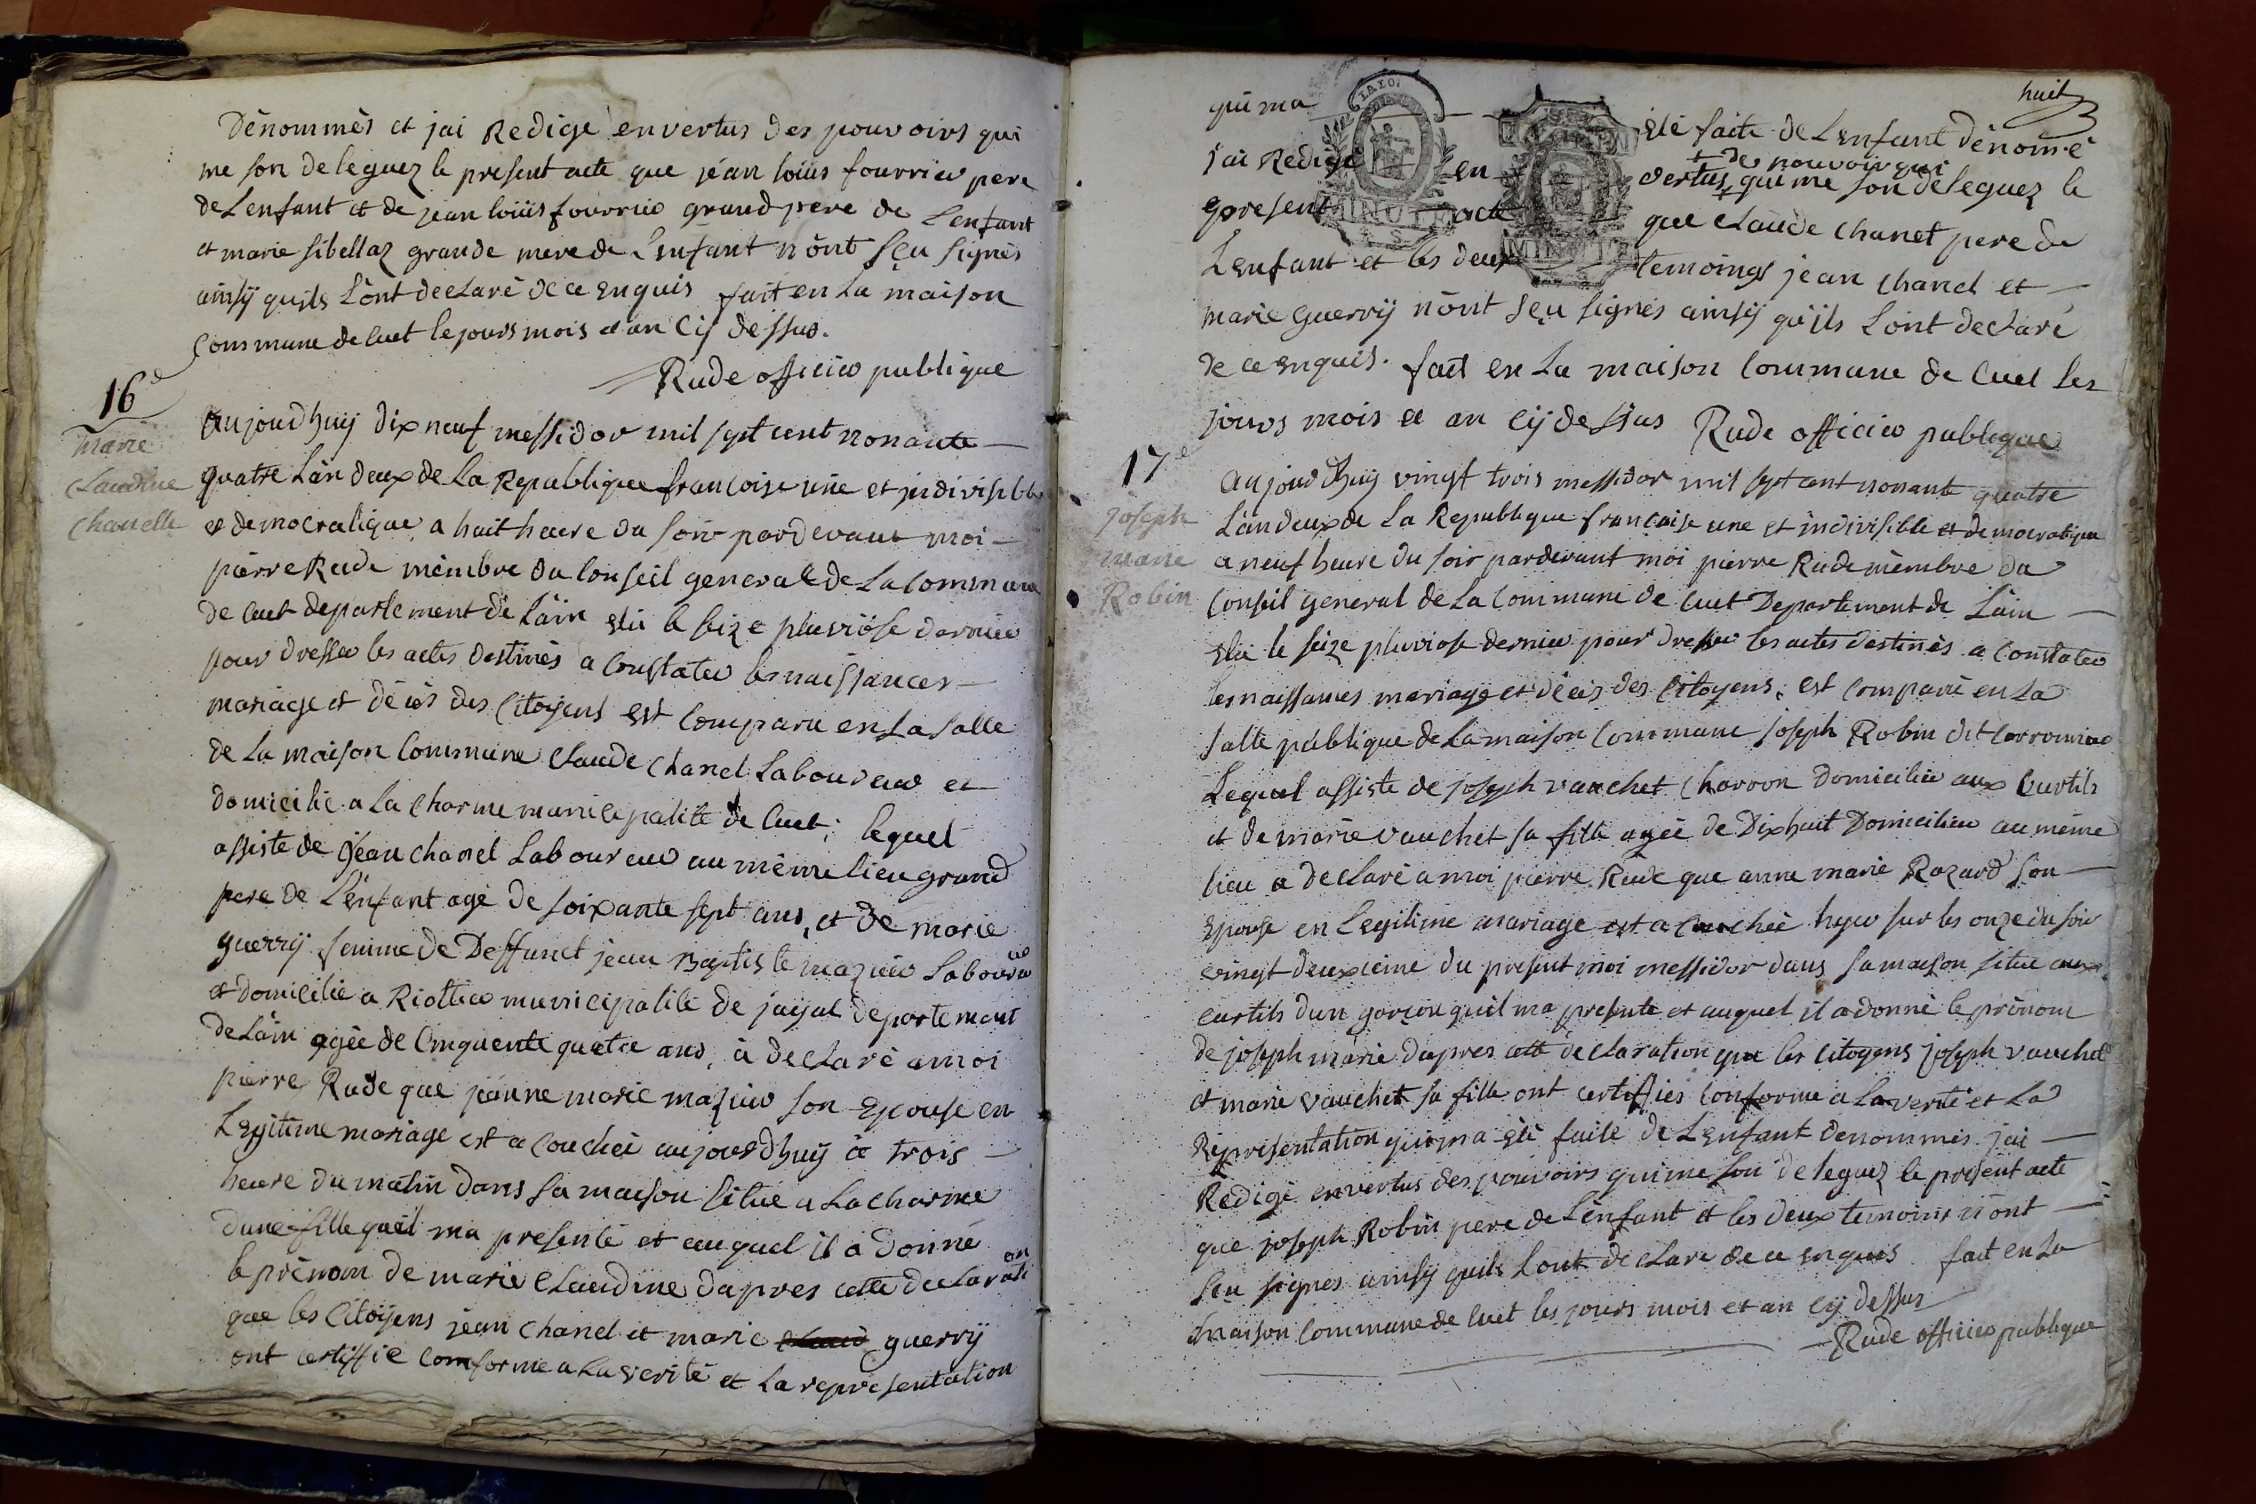 Dénommés et jai Redigé envertus des pouvoirs qui
me son deleguez le present acte que jéan loüis fourrier pere
de Lenfant et de jean loüis fourrier grand pere de Lenfant
et marie sibellaz grande mere de Lenfant nônt sçu signés
ainsÿ quils Lônt declaré de ce enquis fait en La maison
Commune de Cuet le jours mois et an Cij dessus.
Rude officier publique
16e
marie
Claudine
chanelle
Aujourdhuÿ dix neuf messidor mil sept cent nonante
quatre Lân deux de La Republique francoise une et jndivisible
et democratique a huit heure du soir pardevant moi
piérre Rude mémbre du Conseil generale de La Commune
de Cuet departement de Lâin élu le seize pluviôse dernier
pour dresser les actes destinés a Constater les naissances
mariage et décés des Citoyens est Comparu en La salle
de La maison Commune Claude chanel Laboureur et
domicilié a La charme municipalité de Cuet, lequel
assiste de jéan chanel Laboureur au même lieu grand
pere de Lénfant agé de soixante sept ans, et de marie
guerrÿ femme de Deffunct jean Baptiste mazuir Laboureur
et domicilié a Riottier municipalité de jaÿat departement
de Lâin agée de Cinquente quatre ans, à declaré a moi
piérre Rude que jéanne marie mazuir son Epouse en
Legitime mariage est a Couchée aujourdhuÿ à trois
heure du matin dans sa maison située a La charme
dune fille quil ma presenté et auquel il a donné
le prénom de marie Claudine dapres cette declaration
que les Citoÿens jean chanel et marie guerrÿ
ont certiffié Comforme a La verité et La representation
huit
qui ma été faite de Lenfant dénomé
jai Redigé en vertus + des pouvoir qui qui me son deleguez le
present acte que Claude chanel pere de
Lenfant et les deux temoings jean chanel et
marie guerrÿ nônt sçu signés ainsÿ quils Lont declaré
de ce enquis. fait en La maison Commune de Cuet les
jours mois et an cÿ dessus Rude officier publique
17e
joseph
marie
Robin
Aujourdhuÿ vingt trois messidor mil sept cent nonante quatre
Lân deux de La Republique francaise une et indivisible et democratique
a neuf heure du soir pardevant moi pierre Rude mémbre du
Conseil general de La Commune de Cuet Departement de Lâin
élu le seize pluviose dernier pour dresser les actes destinés a Constater
les naissances mariage et décés des Citoyens, est Comparu en La
salle publique de La maison Commune joseph Robin dit
Lequel assiste de joseph vauchet Charron domicilié aux Curtils
et de marie vauchet sa fille agée de Dixhuit Domiciliée au même
lieu a declaré a moi pierre Rude que anne marie Rozard son
Epouse en Legitime mariage est a Couchée hyer sur les onze du soir
vingt deuxieme du present moi messidor dans sa maison située aux
curtils dun garcon quil ma presenté et auquel il a donné le prénom
de joseph marie dapres cette declaration que les Citoyens joseph vauchet
et marie vauchet sa fille ont certiffiés Conforme a La verité et La
Representation qui ma été faite de Lenfant denommés jai
Redigé envertus des pouvoirs qui me son deleguez le present acte
que joseph Robin pere de Lenfant et les deux temoins nônt
sçu signes ainsÿ quils Lont declaré de ce enquis fait en La
maison Commune de Cuet les jours mois et an cÿ dessus
Rude officier publique